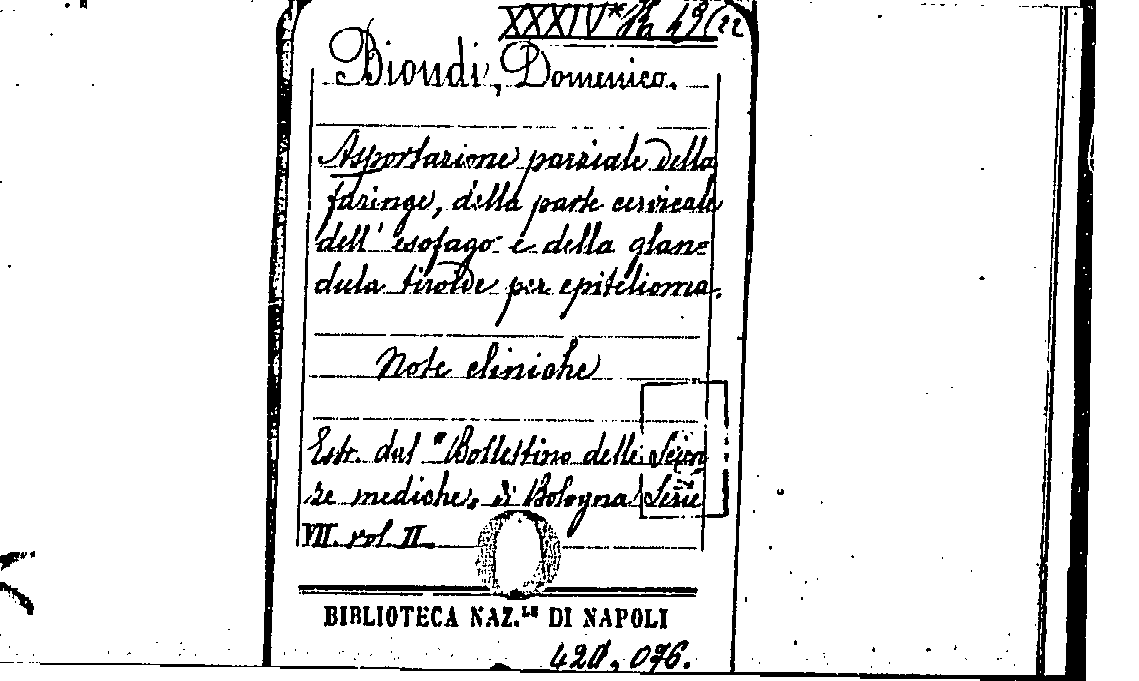 XXXIV* 49(22
Biondi, Domenico.
Asportazione parziale della
faringe, della parte cervicale
dell' esofago e della glan=
dula tiroide per epitelioma.
Note cliniche
Estr. dal "Bollettino delle Scien
ze mediche, di Bologna Serie
VII. vol. II
BIBLIOTECA NAZ.LE DI NAPOLI